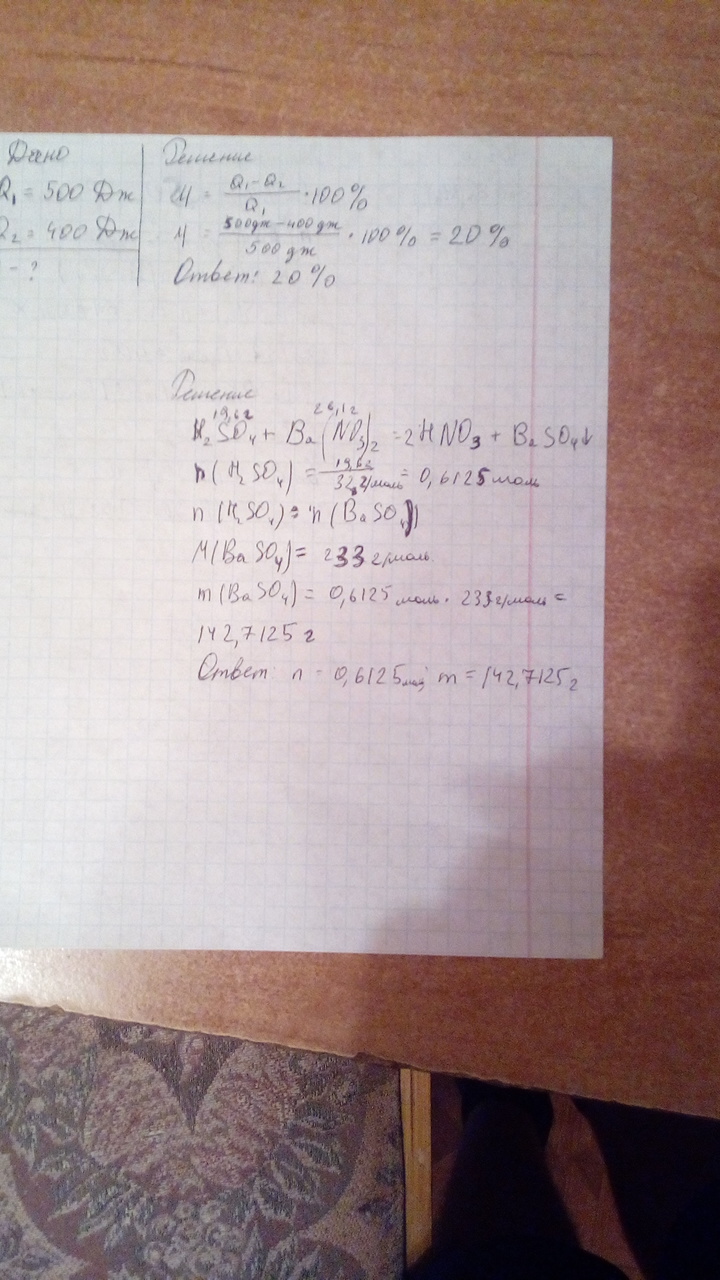 Дано
Q₁ = 500 Дж
Q₂ = 400 Дж
- ?
Решение
η = Q₁-Q₂ / Q₁ · 100%
η = 500 дж - 400 дж / 500 дж · 100% = 20%
Ответ: 20%
Решение
19,6г 26,1г
H₂SO₄ + Ba(NO₃)₂ = 2HNO₃ + BaSO₄↓
n(H₂SO₄) = 19,6г / 32 г/моль = 0,6125 моль
n(H₂SO₄) = n(BaSO₄)
M(BaSO₄) = 233 г/моль
m(BaSO₄) = 0,6125 моль · 233 г/моль =
142,7125 г
Ответ: n = 0,6125 моль; m = 142,7125 г